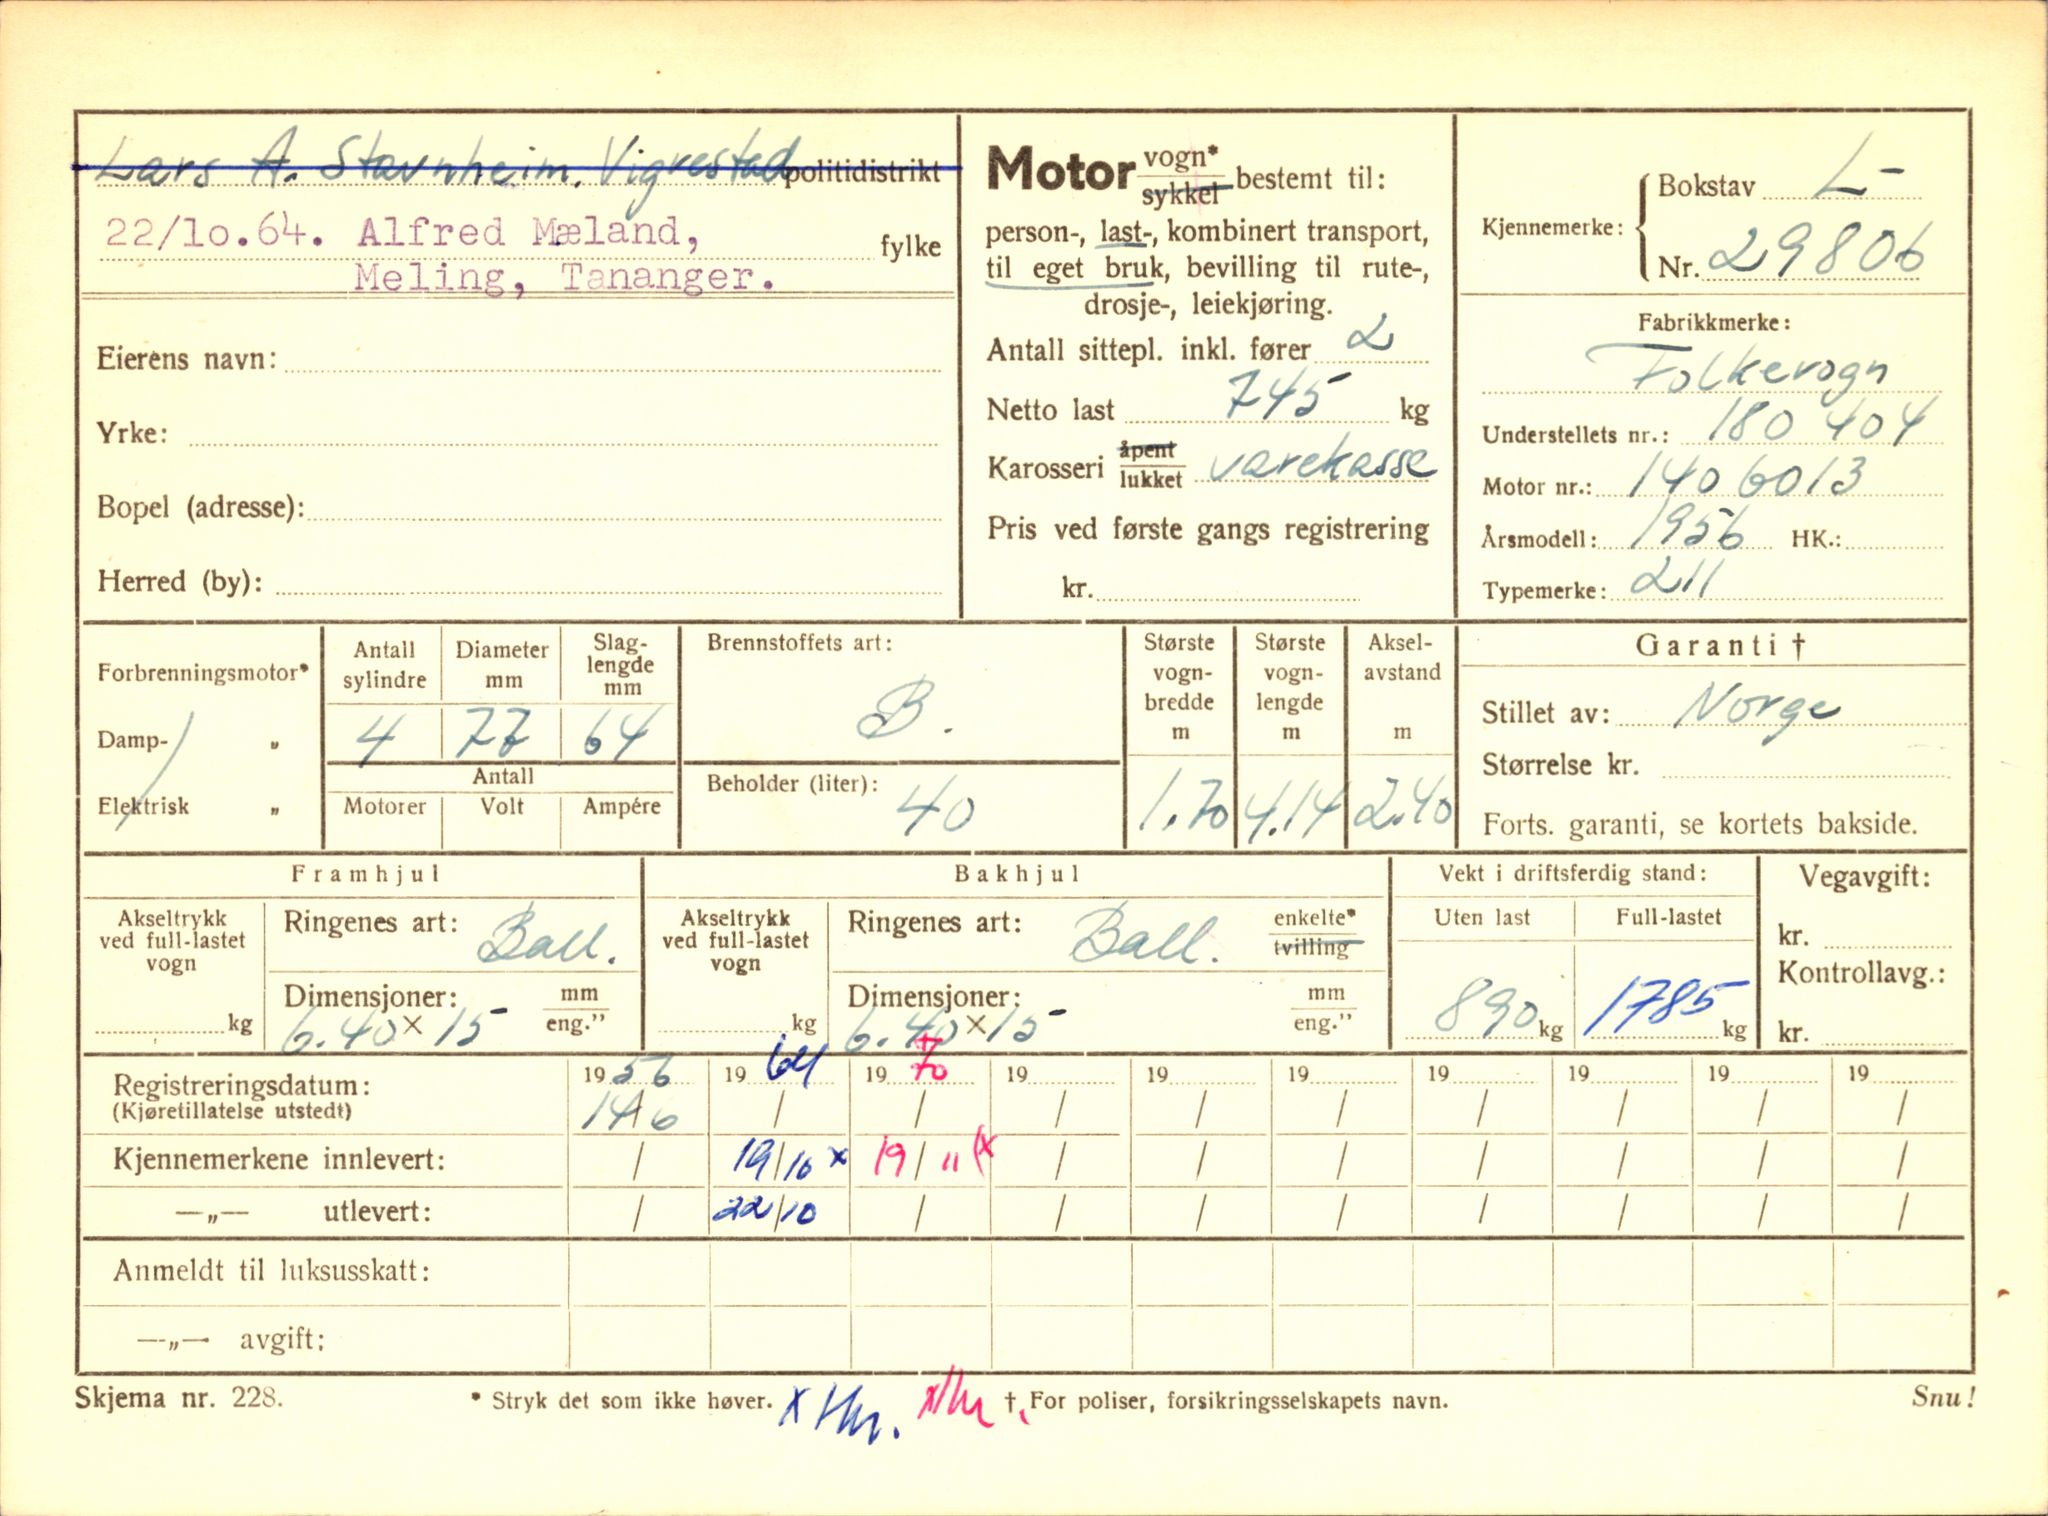 Lars A. Stavnheim. Vigrestad politidistrikt
22/10.64. Alfred Mæland, fylke
Meling, Tananger.
Eierens navn:
Yrke:
Bopel (adresse):
Herred (by):
Motor vogn* sykkel bestemt til:
person-, last-, kombinert transport,
til eget bruk, bevilling til rute-,
drosje-, leiekjøring.
Antall sittepl. inkl. fører 2
Netto last 745 kg
Karosseri åpent lukket varekasse
Pris ved første gangs registrering
kr.
Kjennemerke: Bokstav L-
Nr. 29806
Fabrikkmerke:
Folkevogn
Understellets nr.: 180 404
Motor nr.: 1406013
Årsmodell: 1956 HK.:
Typemerke: 211
Forbrenningsmotor*
Damp- „
Elektrisk „
Antall sylindre
Diameter mm
Slag-lengde mm
4 77 64
Antall
Motorer Volt Ampére
Brennstoffets art:
B.
Beholder (liter):
40
Største vogn-bredde m
1.70
Største vogn-lengde m
4.14
Aksel-avstand m
2.40
Garanti †
Stillet av: Norge
Størrelse kr.
Forts. garanti, se kortets bakside.
Framhjul
Akseltrykk
ved full-lastet
vogn
kg
Ringenes art: Ball.
Dimensjoner: mm
6.40 x 15 eng."
Bakhjul
Akseltrykk
ved full-lastet
vogn
kg
Ringenes art: Ball. enkelte* tvilling
Dimensjoner: mm
6.40 x 15 eng."
Vekt i driftsferdig stand:
Uten last Full-lastet
890 kg 1785 kg
Vegavgift:
kr.
Kontrollavg.:
kr.
Registreringsdatum: 1956 1964 1970 19 19 19 19 19 19 19
(Kjøretillatelse utstedt) 14/6 / / / / / / / / /
Kjennemerkene innlevert: / 19/10 x 19/11 (x / / / / / / /
—„— utlevert: / 22/10 / / / / / / / /
Anmeldt til luksusskatt:
—„— avgift:
Skjema nr. 228. * Stryk det som ikke høver. † For poliser, forsikringsselskapets navn. Snu!